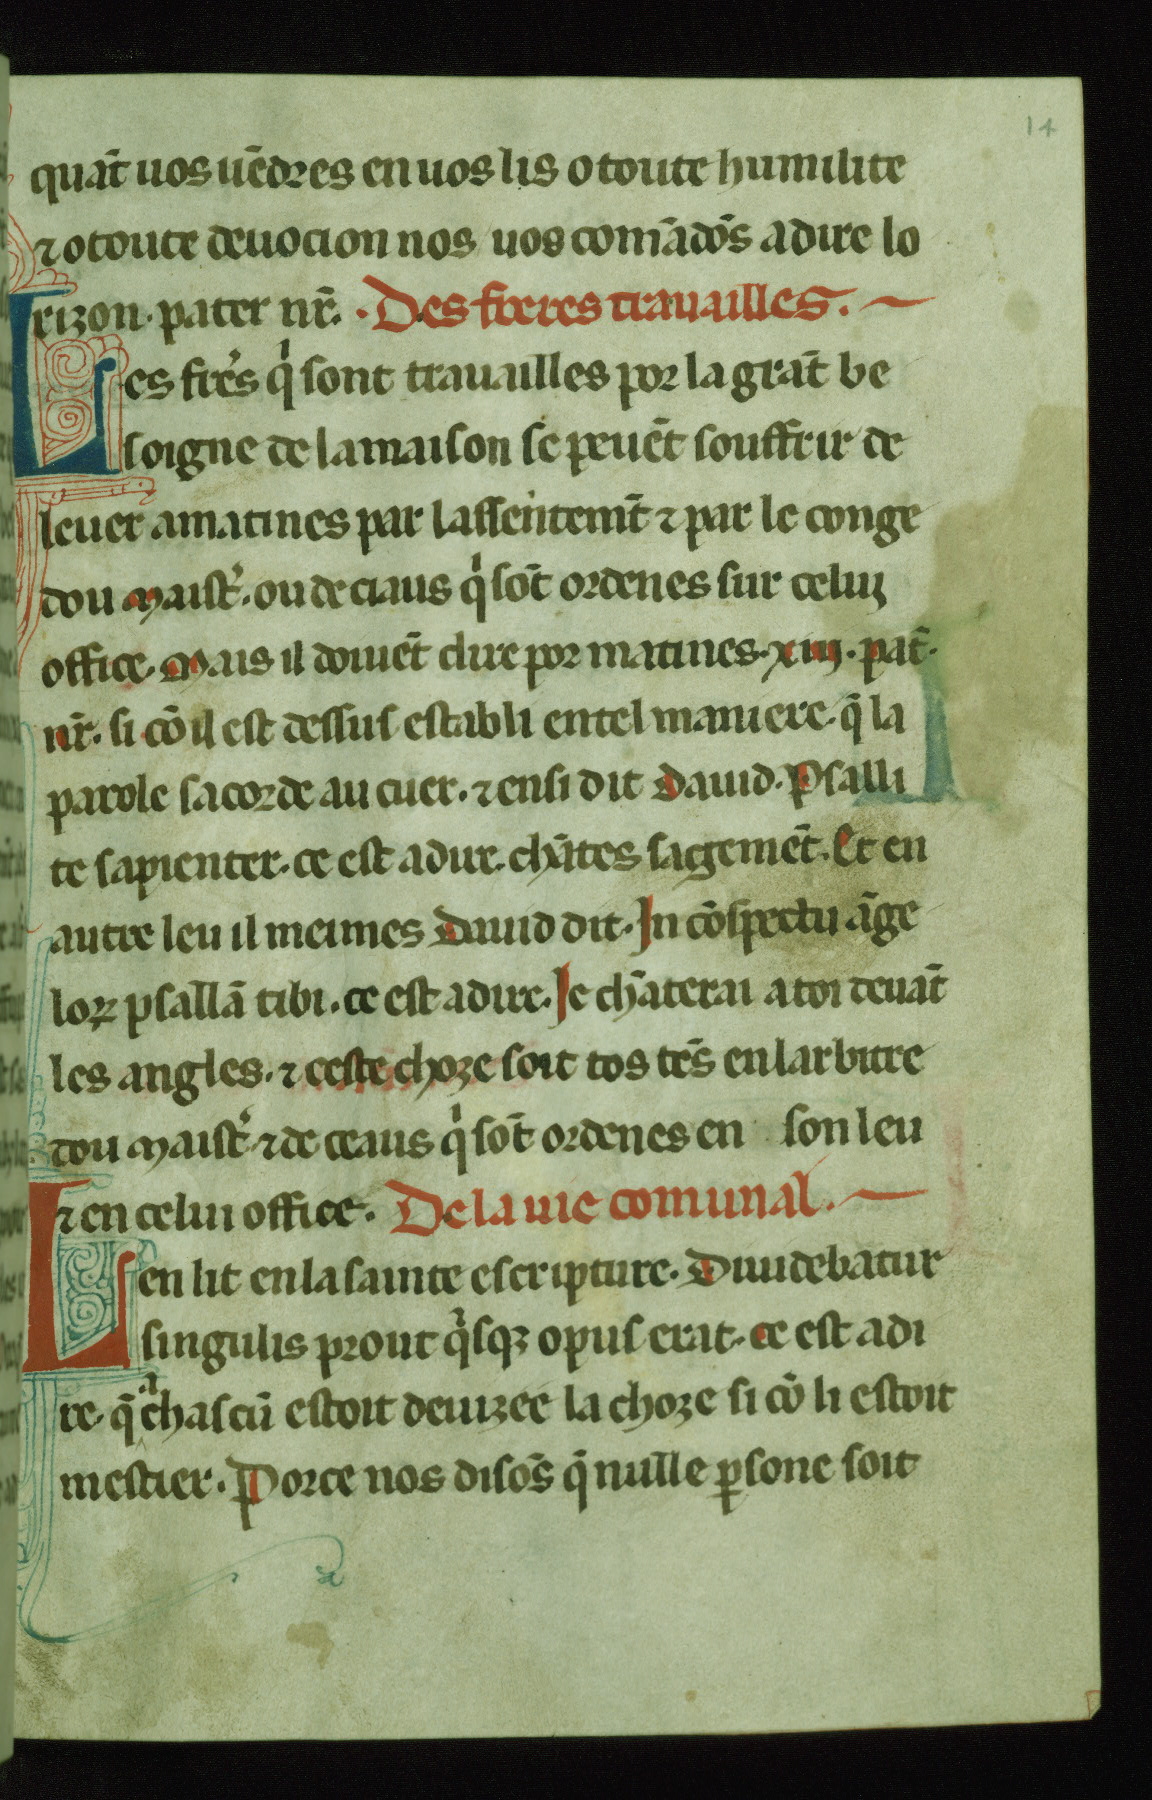 14
quãt uos uẽdres en uos lis o toute humilite
⁊ o toute deuocion nos uos comãdõs a dire lo
rizon. pater nr̃. Des freres trauailles.
Les frẽs q̾ sont trauailles por la grãt be
soigne de la maison se peuẽt souffrir de
leuer a matines par lassentemt̃ ⁊ par le conge
dou maist͛. ou de ciaus q̾ sõt ordenes sur celui
office. Mais il doiuẽt dire por matines. xiii. pat̃.
nr̃. si cõ il est dessus establi en tel maniere. q̃ la
parole sacorde au cuer. ⁊ ensi dit Dauid. Psalli
te sapienter. ce est a dire. chãtes sagemẽt. Et en
autre leu il meimes Dauid dit. In cõspectu ãge
loꝝ psallã tibi. ce est a dire. Je chãterai a toi deuãt
les angles. ⁊ ceste choze soit tos tẽs en larbitre
dou maist͛ ⁊ de ceaus q̾ sõt ordenes en son leu
⁊ en celui office. De la uie comunal.
Len lit en la sainte escripture. Diuidebatur
singulis prout q̾sqꝫ opus erat. ce est a di
re. q̃ a chascũ estoit deuizee la choze si cõ li estoit
mestier. Por ce nos disõs q̃ nulle ꝑsone soit